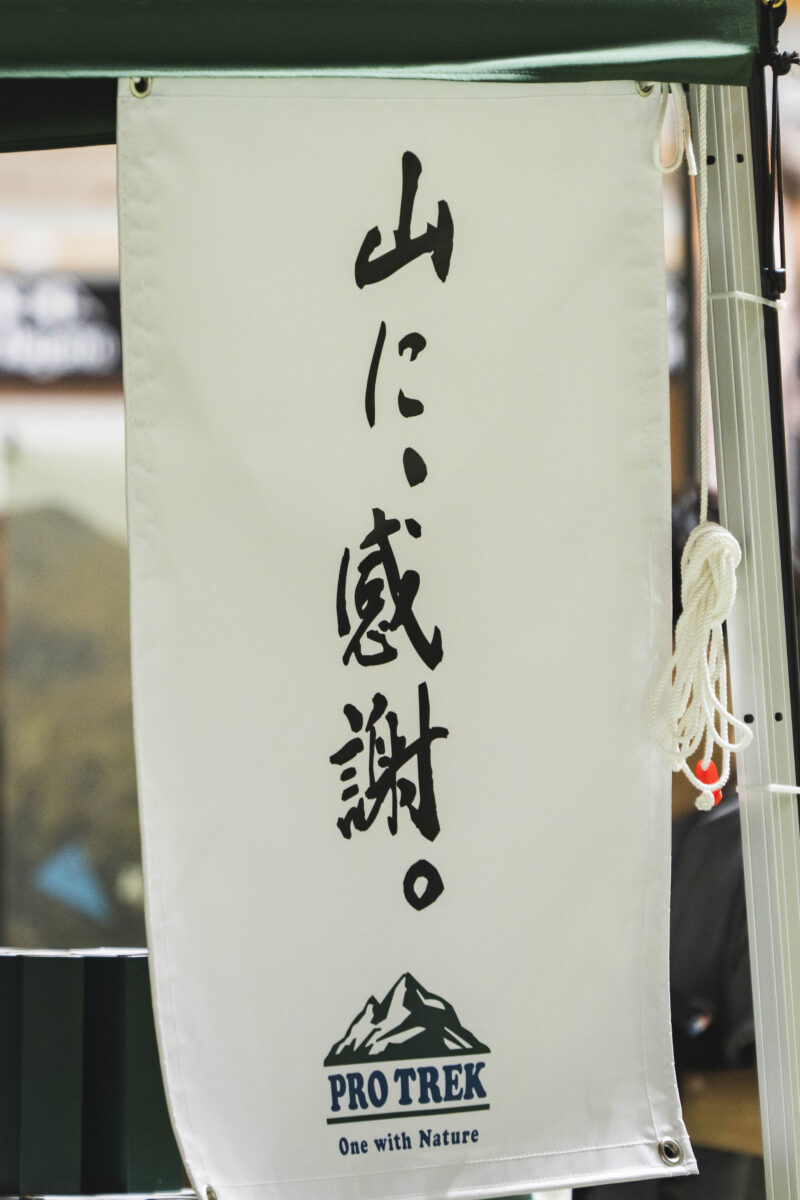 山に、感謝。
PRO TREK
One with Nature